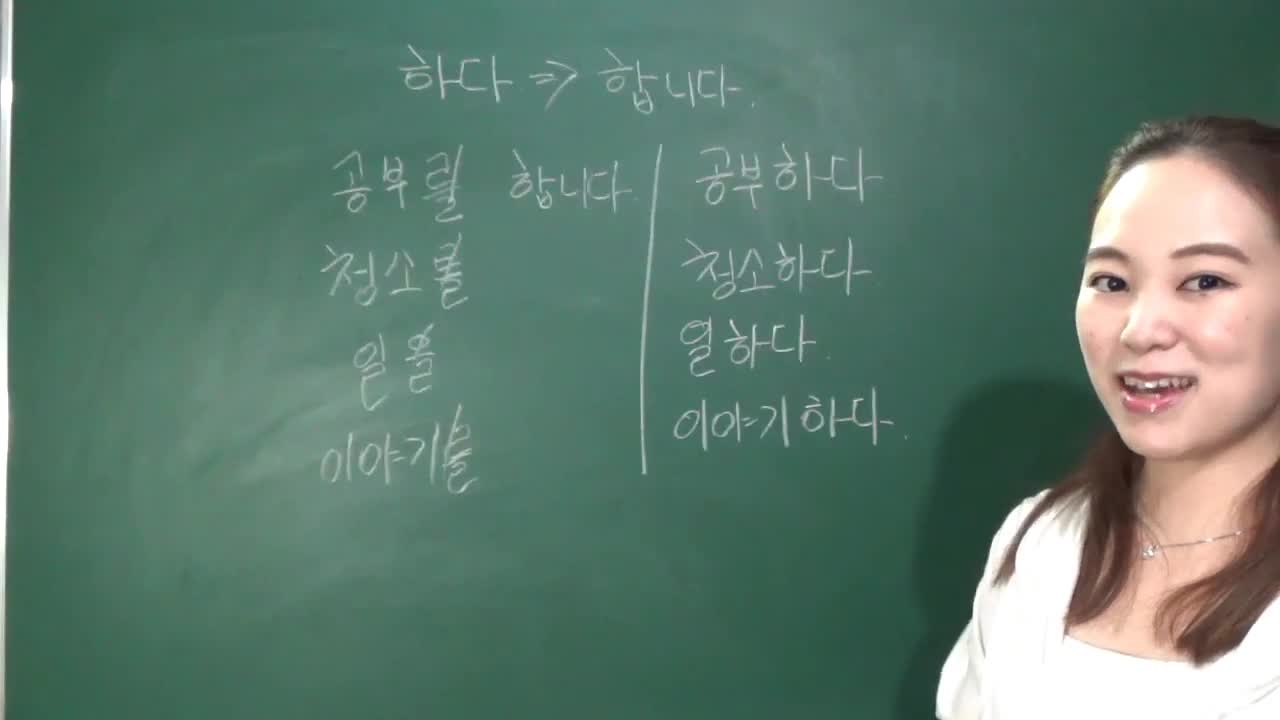 하다 => 합니다.
공부를 합니다. 공부하다
청소를 청소하다.
일을 일하다.
이야기를 이야기하다.